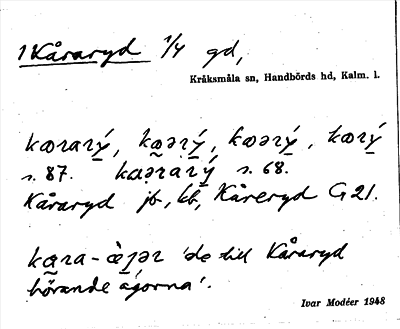 1 Kåraryd 1/4 gd,
Kråksmåla sn, Handbörds hd, Kalm. l.
kærarý, kæərý, kæərý, kærý
s. 87. kaərarý s. 68.
Kåraryd jb, kb, Kåreryd G 21.
kæra-ägər 'de till Kåraryd
hörande ägorna'.
Ivar Modéer 1948